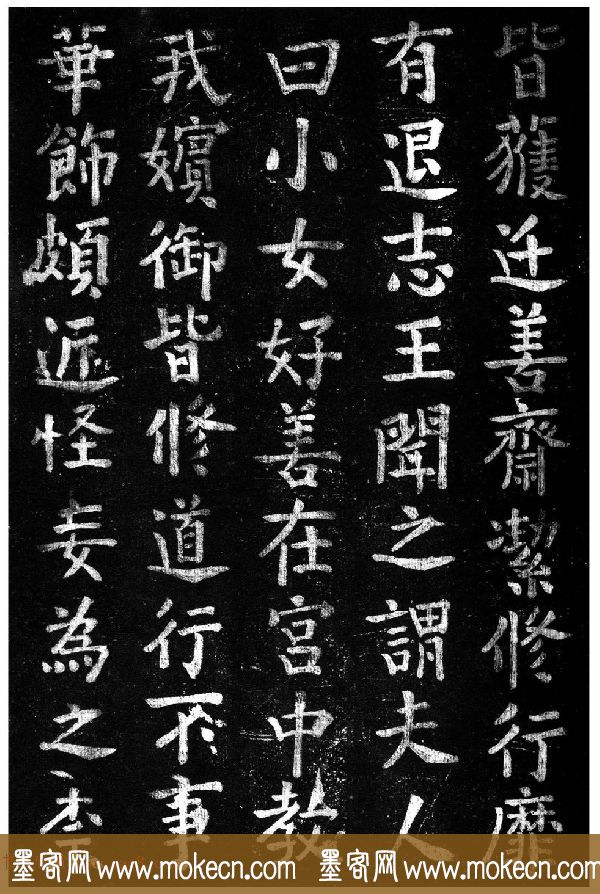 皆獲迁善齋潔修行靡
有退志王聞之謂夫人
曰小女好善在宮中教
我嬪御皆修道行不事
華飾頗近怪妄為之
墨客网 www.mokecn.com 墨客网 www.mokecn.com